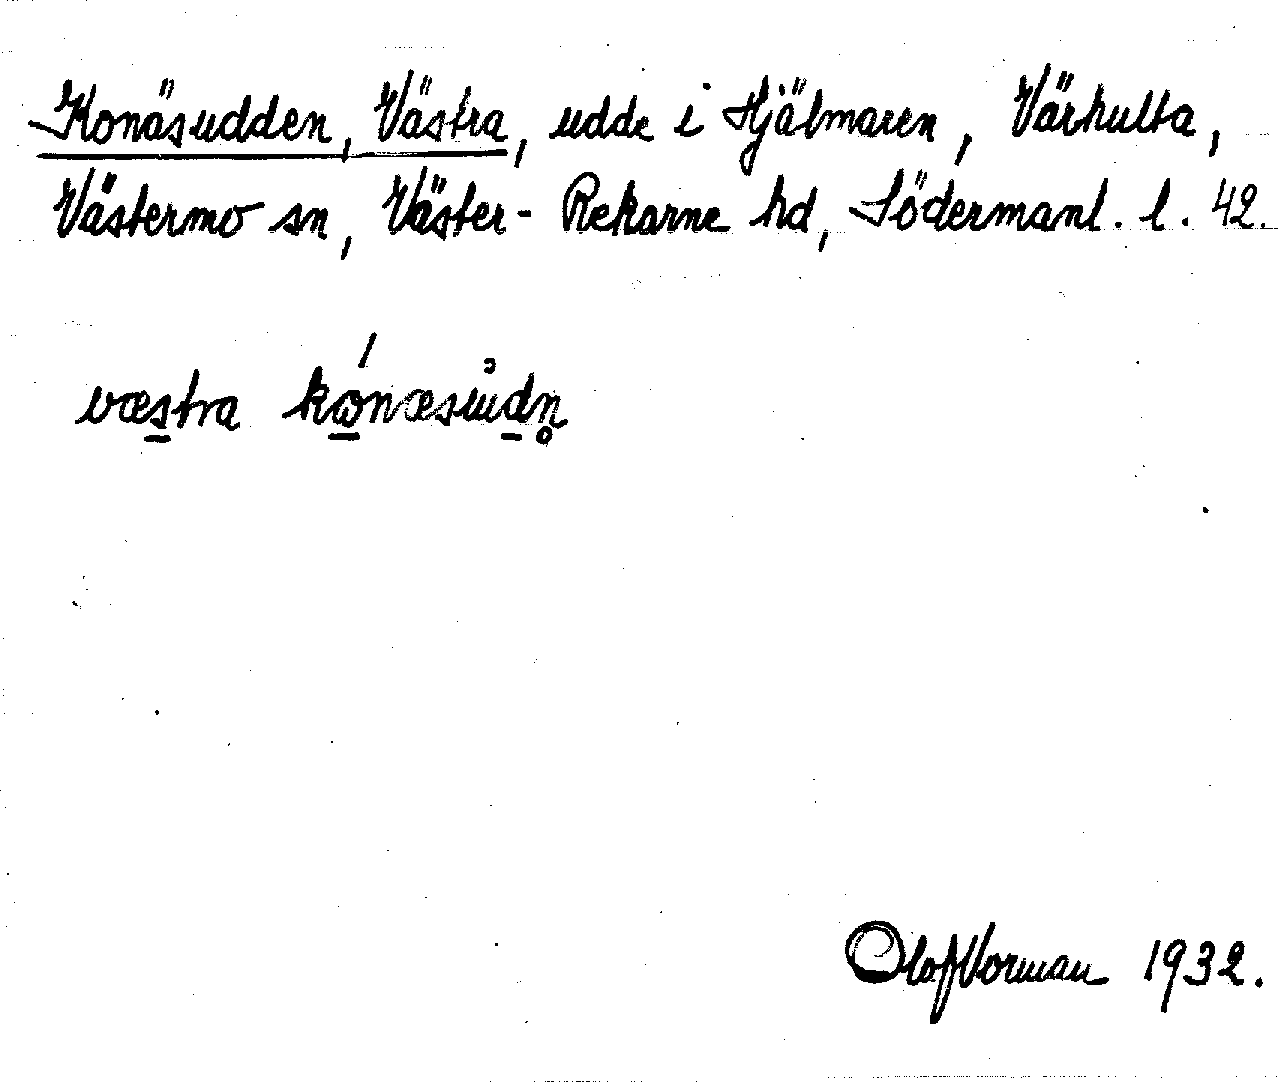 Konäsudden, Västra, udde i Hjälmaren, Värhulta,
Västermo sn, Väster-Rekarne hd, Södermanl. l. 42.
væstra kónæsu̇dn̥
Olof Vorman 1932.